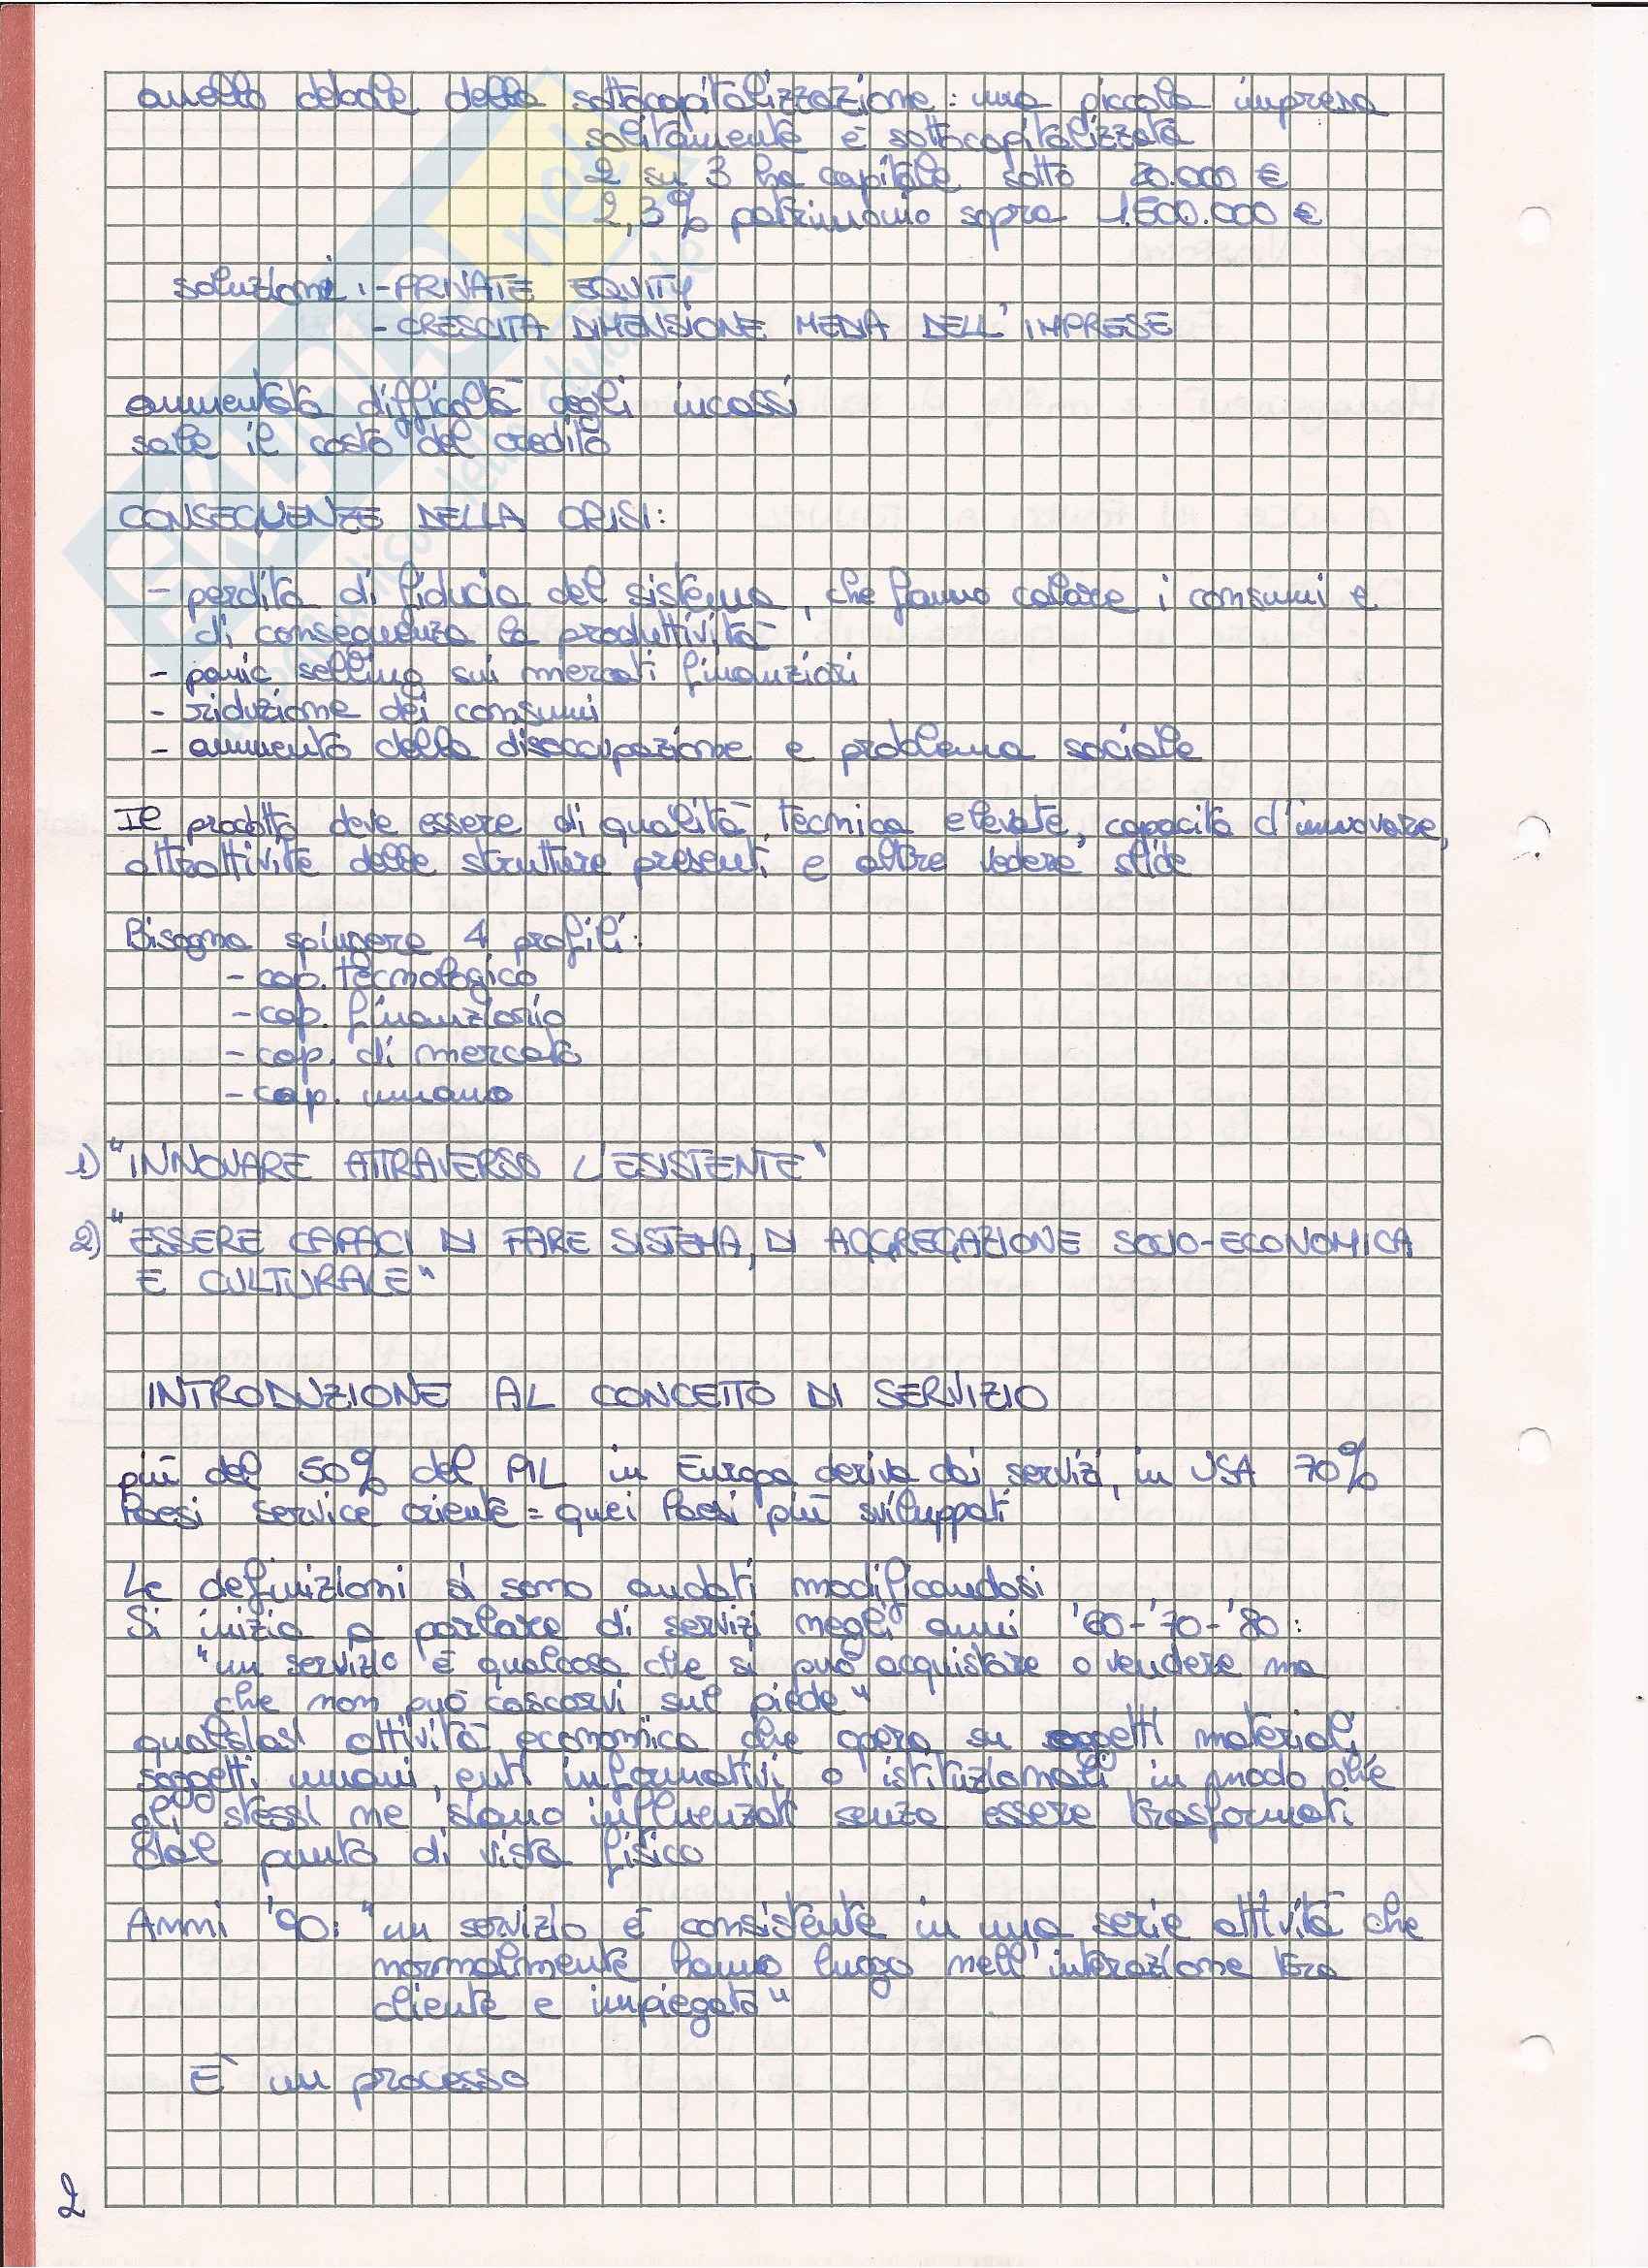 anello debole della sottocapitalizzazione: una piccola impresa
solitamente è sottocapitalizzata
2 su 3 ha capitale sotto 20.000 €
2,3% patrimonio sopra 1.500.000 €
soluzioni: - PRIVATE EQUITY
- CRESCITA DIMENSIONE MEDIA DELL'IMPRESE
aumentata difficoltà degli incassi
sale il costo del credito
CONSEGUENZE DELLA CRISI:
- perdita di fiducia del sistema, che fanno calare i consumi e
di conseguenza la produttività
- panic selling sui mercati finanziari
- riduzione dei consumi
- aumento della disoccupazione e problema sociale
Il prodotto deve essere di qualità tecnica elevate, capacità d'innovare,
attrattività delle strutture presenti e oltre vedere sfide
Bisogna spingere 4 profili:
- cap. tecnologico
- cap. finanziario
- cap. di mercato
- cap. umano
1) "INNOVARE ATTRAVERSO L'ESISTENTE"
2) "ESSERE CAPACI DI FARE SISTEMA, DI AGGREGAZIONE SOCIO-ECONOMICA
E CULTURALE"
INTRODUZIONE AL CONCETTO DI SERVIZIO
più del 50% del PIL in Europa deriva dai servizi, in USA 70%
Paesi service oriente = quei Paesi più sviluppati
Le definizioni si sono andati modificandosi
Si inizia a parlare di servizi negli anni '60-'70-'80:
"un servizio è qualcosa che si può acquistare o vendere ma
che non può cascarvi sul piede"
qualsiasi attività economica che opera su oggetti materiali
soggetti umani, enti informativi o istituzionali in modo che
gli stessi ne siano influenzati senza essere trasformati
dal punto di vista fisico
Anni '90: "un servizio è consistente in una serie attività che
normalmente hanno luogo nell'interazione tra
cliente e impiegato"
È un processo
2